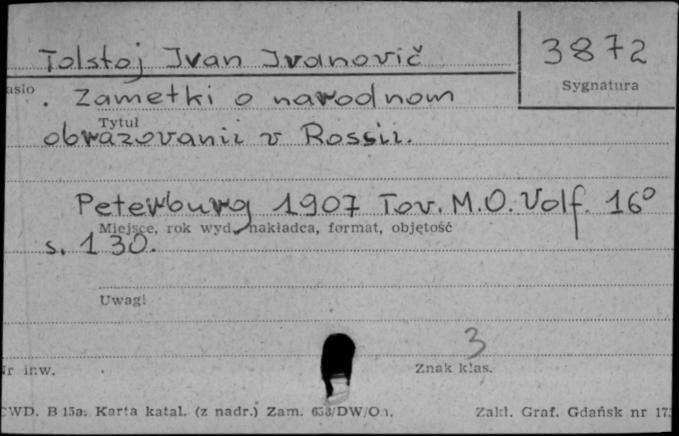 Tolstoj Ivan Ivanovič
3872
Sygnatura
asło
. Zametki o narodnom
Tytuł
obrazovanii v Rossii.
Peterburg 1907 Tov. M.O. Volf. 16°
Miejsce, rok wyd., nakładca, format, objętość
s. 130.
Uwagi
3
Nr inw.
Znak klas.
CWD. B 15a. Karta katal. (z nadr.) Zam.
Zakł. Graf. Gdańsk nr